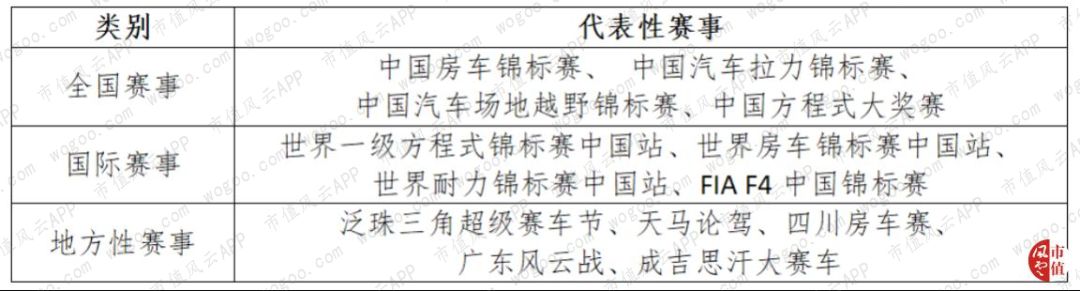 类别 代表性赛事
全国赛事 中国房车锦标赛、 中国汽车拉力锦标赛、
中国汽车场地越野锦标赛、中国方程式大奖赛
国际赛事 世界一级方程式锦标赛中国站、世界房车锦标赛中国站、
世界耐力锦标赛中国站、FIA F4 中国锦标赛
地方性赛事 泛珠三角超级赛车节、天马论驾、四川房车赛、
广东风云战、成吉思汗大赛车
市值风云APP wogoo.com
市值风云